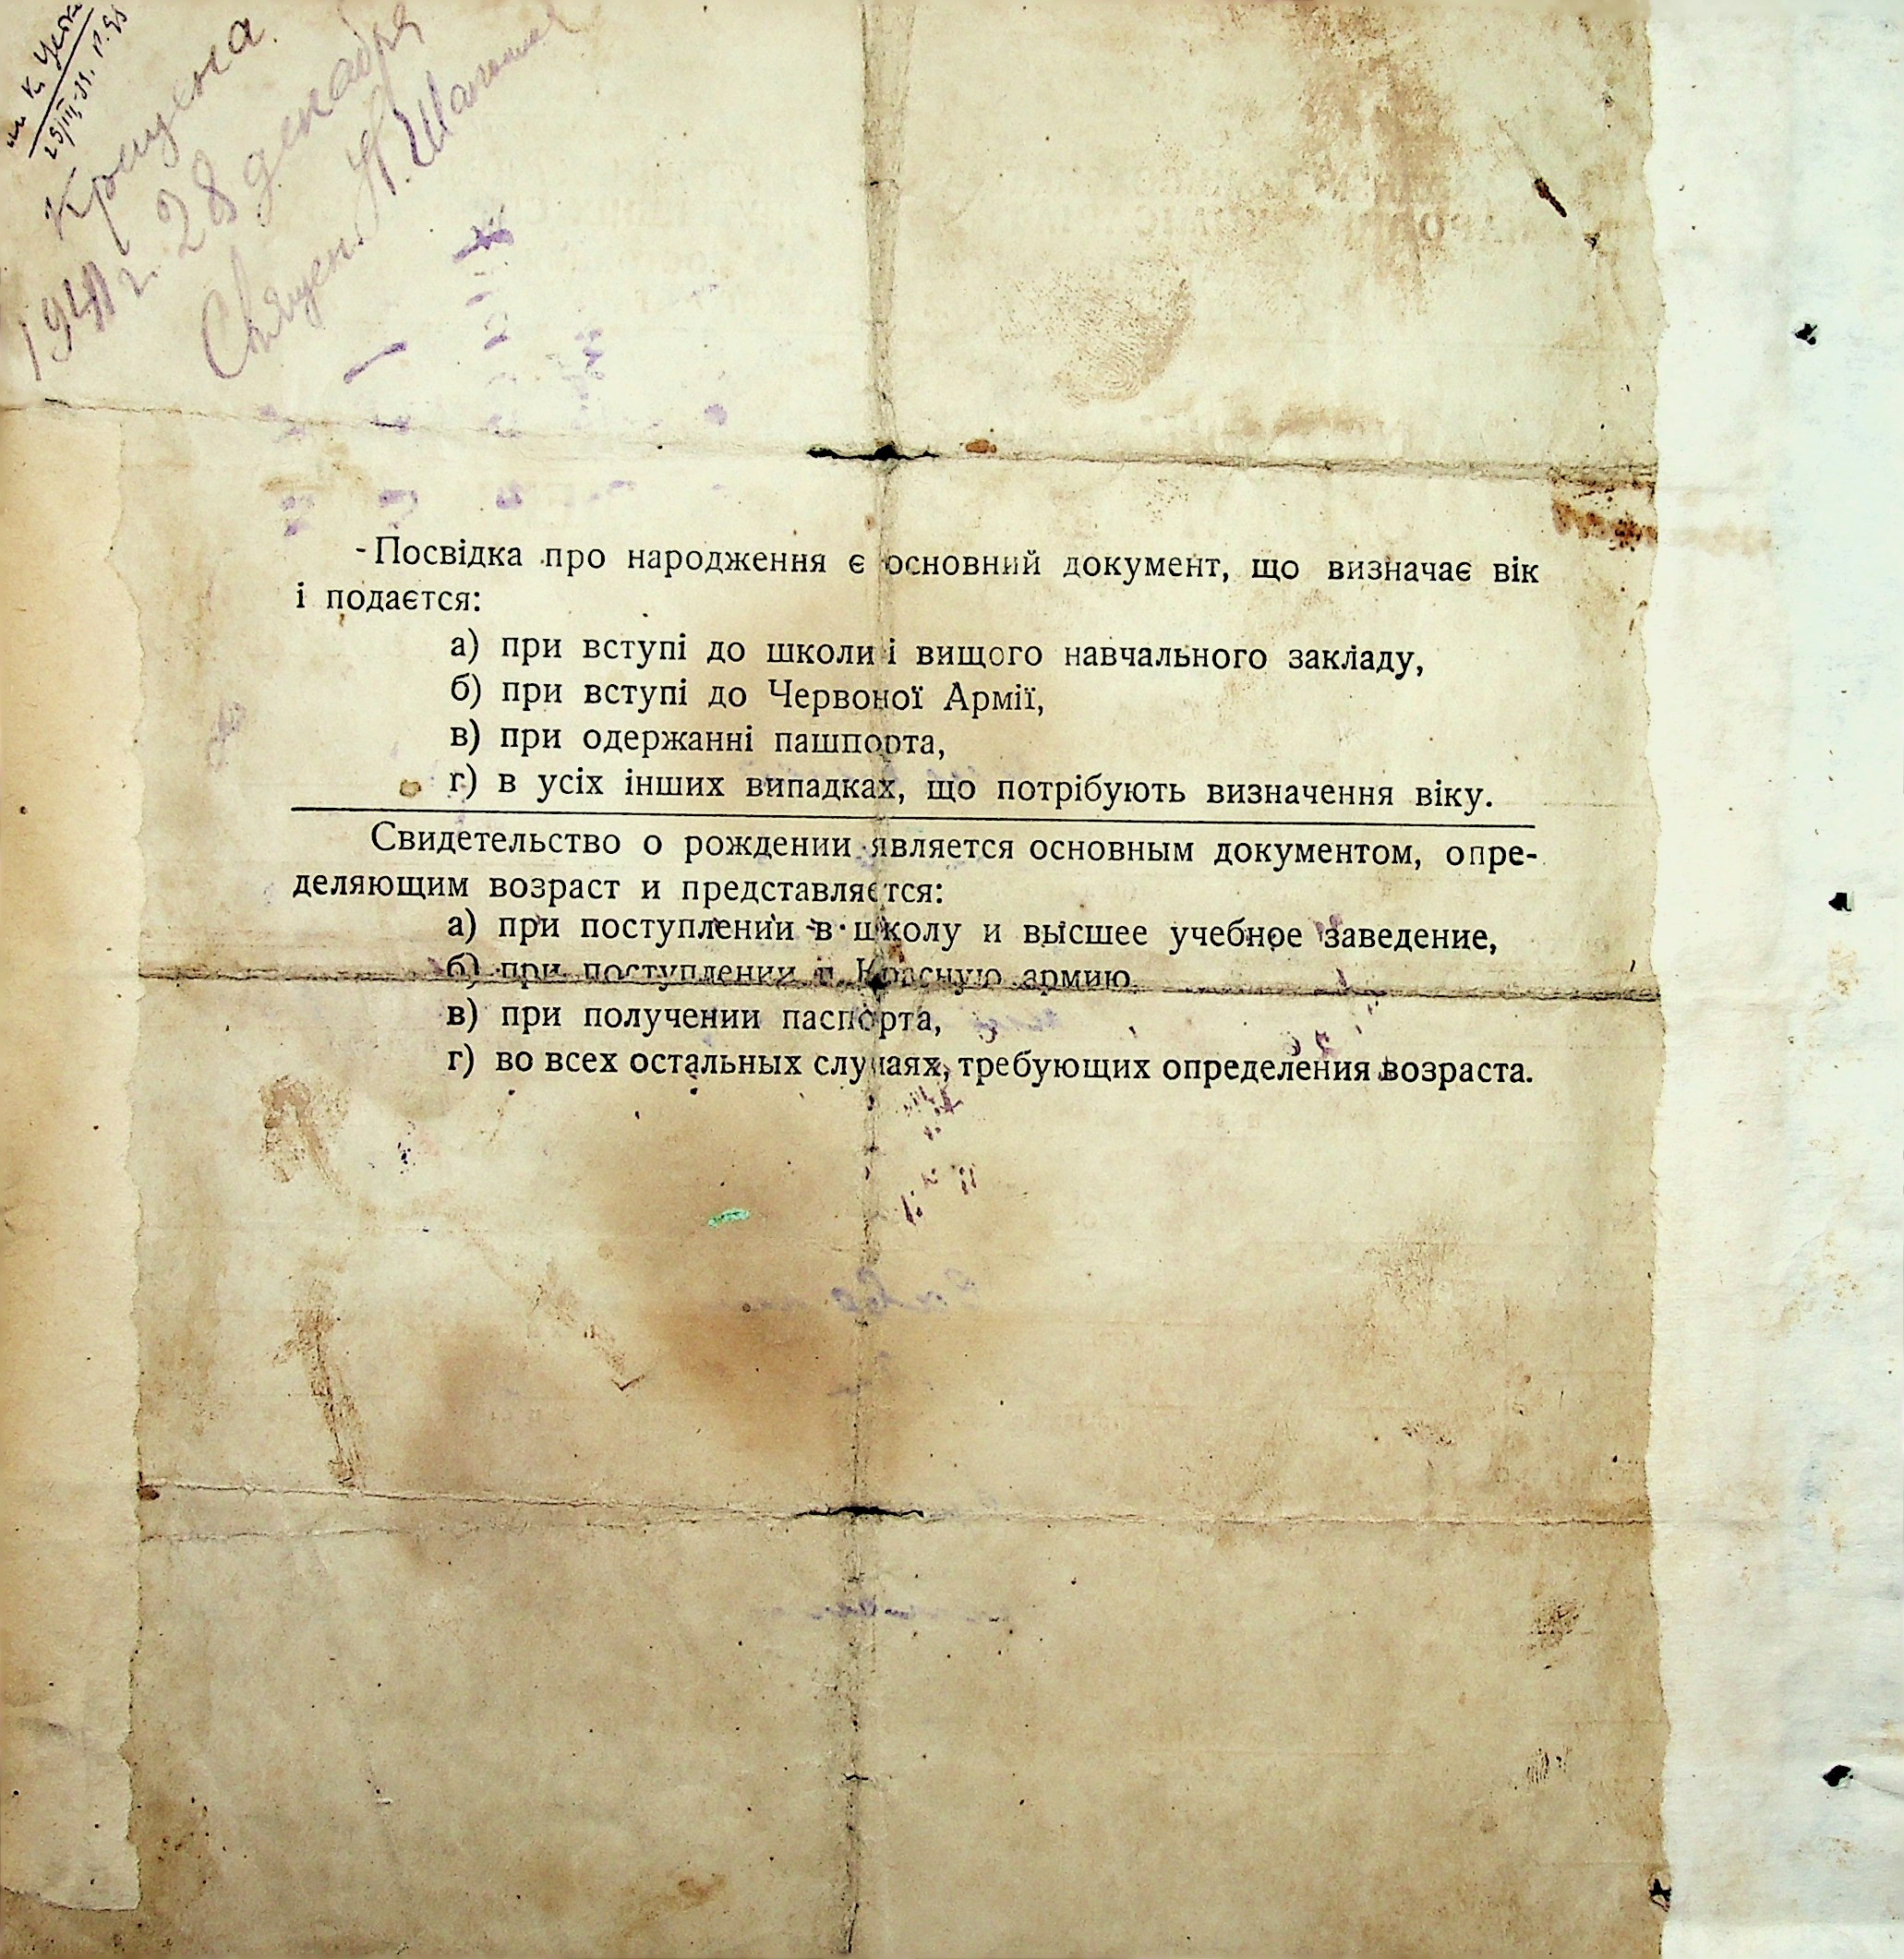 Крещена
1941 г. 28 декабря
Священ. Н.
-Посвідка про народження є основний документ, що визначає вік
і подаєтся:
а) при вступі до школи і вищого навчального закладу,
б) при вступі до Червоної Армії,
в) при одержанні пашпорта,
г) в усіх інших випадках, що потрібують визначення віку.
Свидетельство о рождении является основным документом, опре-
деляющим возраст и представляется:
а) при поступлении в школу и высшее учебное заведение,
б) при поступлении в Красную армию,
в) при получении паспорта,
г) во всех остальных случаях, требующих определения возраста.